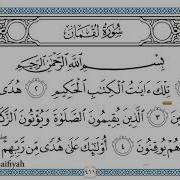 سُورَةُ لُقْمَانَ
بِسْمِ ٱللَّهِ ٱلرَّحْمَٰنِ ٱلرَّحِيمِ
تِلْكَ ءَايَٰتُ ٱلْكِتَٰبِ ٱلْحَكِيمِ ٢ هُدًى
٣ ٱلَّذِينَ يُقِيمُونَ ٱلصَّلَوٰةَ وَيُؤْتُونَ ٱلزَّك
هُمْ يُوقِنُونَ ٤ أُو۟لَٰٓئِكَ عَلَىٰ هُدًى مِّن رَّبِّهِمْ
٤١١
aifiyah